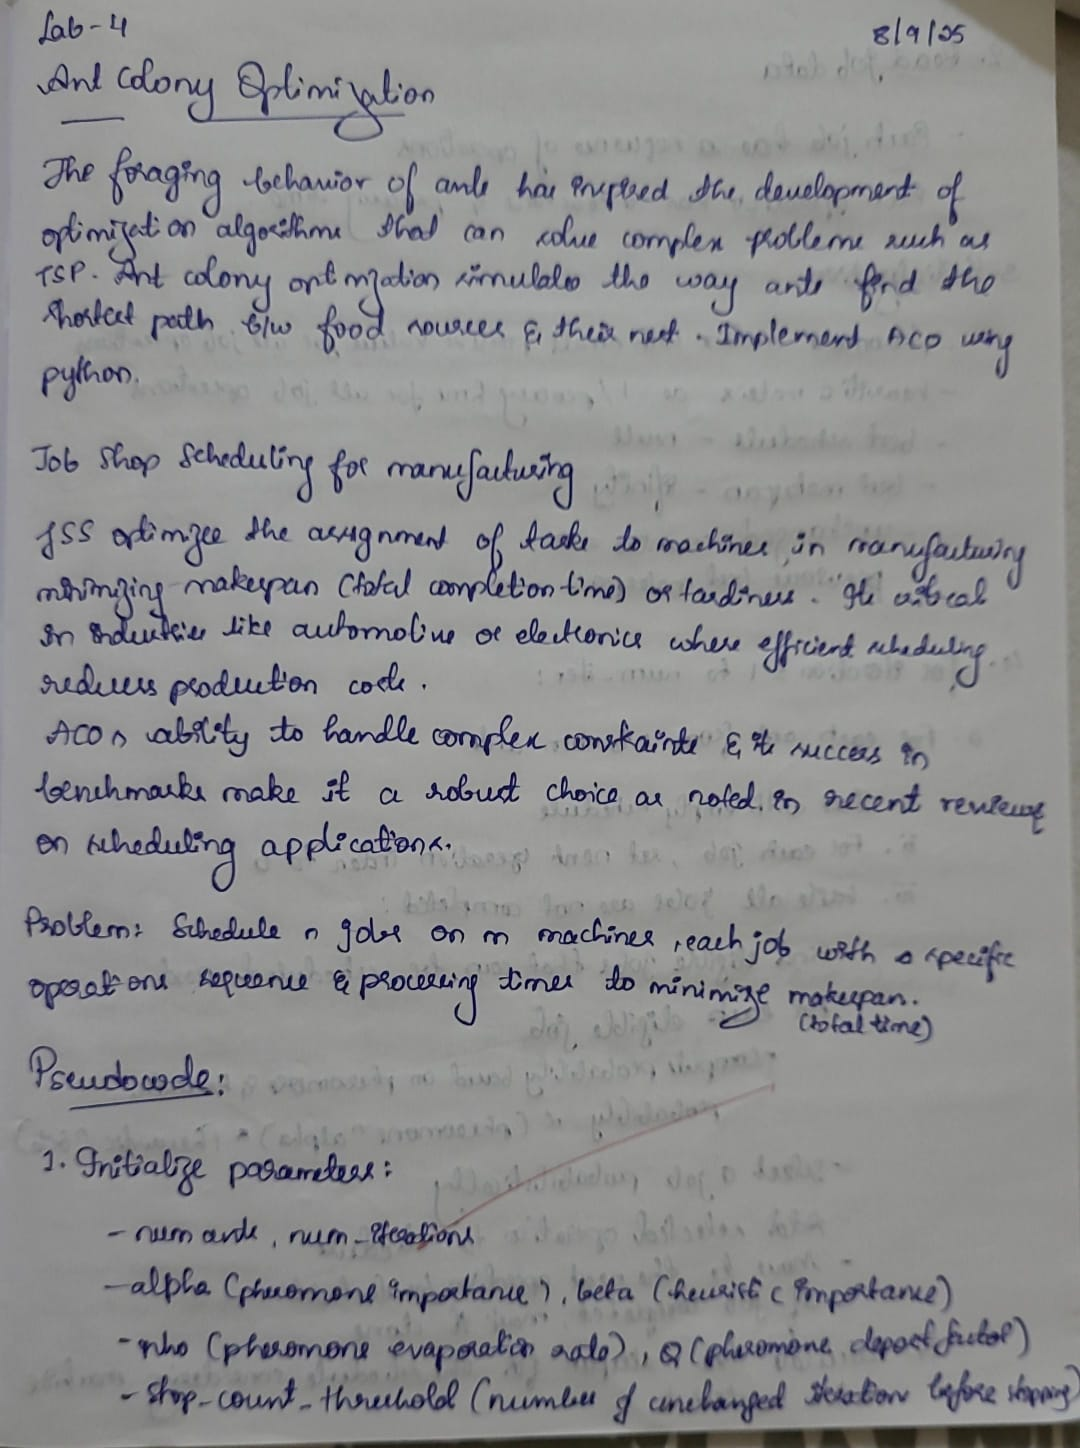 Lab-4
8/9/25
Ant Colony Optimization
The foraging behavior of ants has inspired the development of
optimization algorithms that can solve complex problems such as
TSP. Ant colony optimization simulates the way ants find the
shortest path b/w food sources & their nest. Implement ACO using
python.
Job Shop Scheduling for manufacturing
JSS optimizes the assignment of tasks to machines in manufacturing
minimizing makespan (total completion time) or tardiness. It's critical
in industries like automotive or electronics where efficient scheduling
reduces production costs.
ACO's ability to handle complex constraints & its success in
benchmarks make it a robust choice as noted in recent reviews
on scheduling applications.
Problem: Schedule n jobs on m machines, each job with a specific
operations sequence & processing times to minimize makespan.
(total time)
Pseudocode:
1. Initialize parameters:
- num ants, num_iterations
- alpha (pheromone importance), beta (heuristic importance)
- rho (pheromone evaporation rate), Q (pheromone deposit factor)
- stop_count_threshold (number of unchanged iteration before stopping)